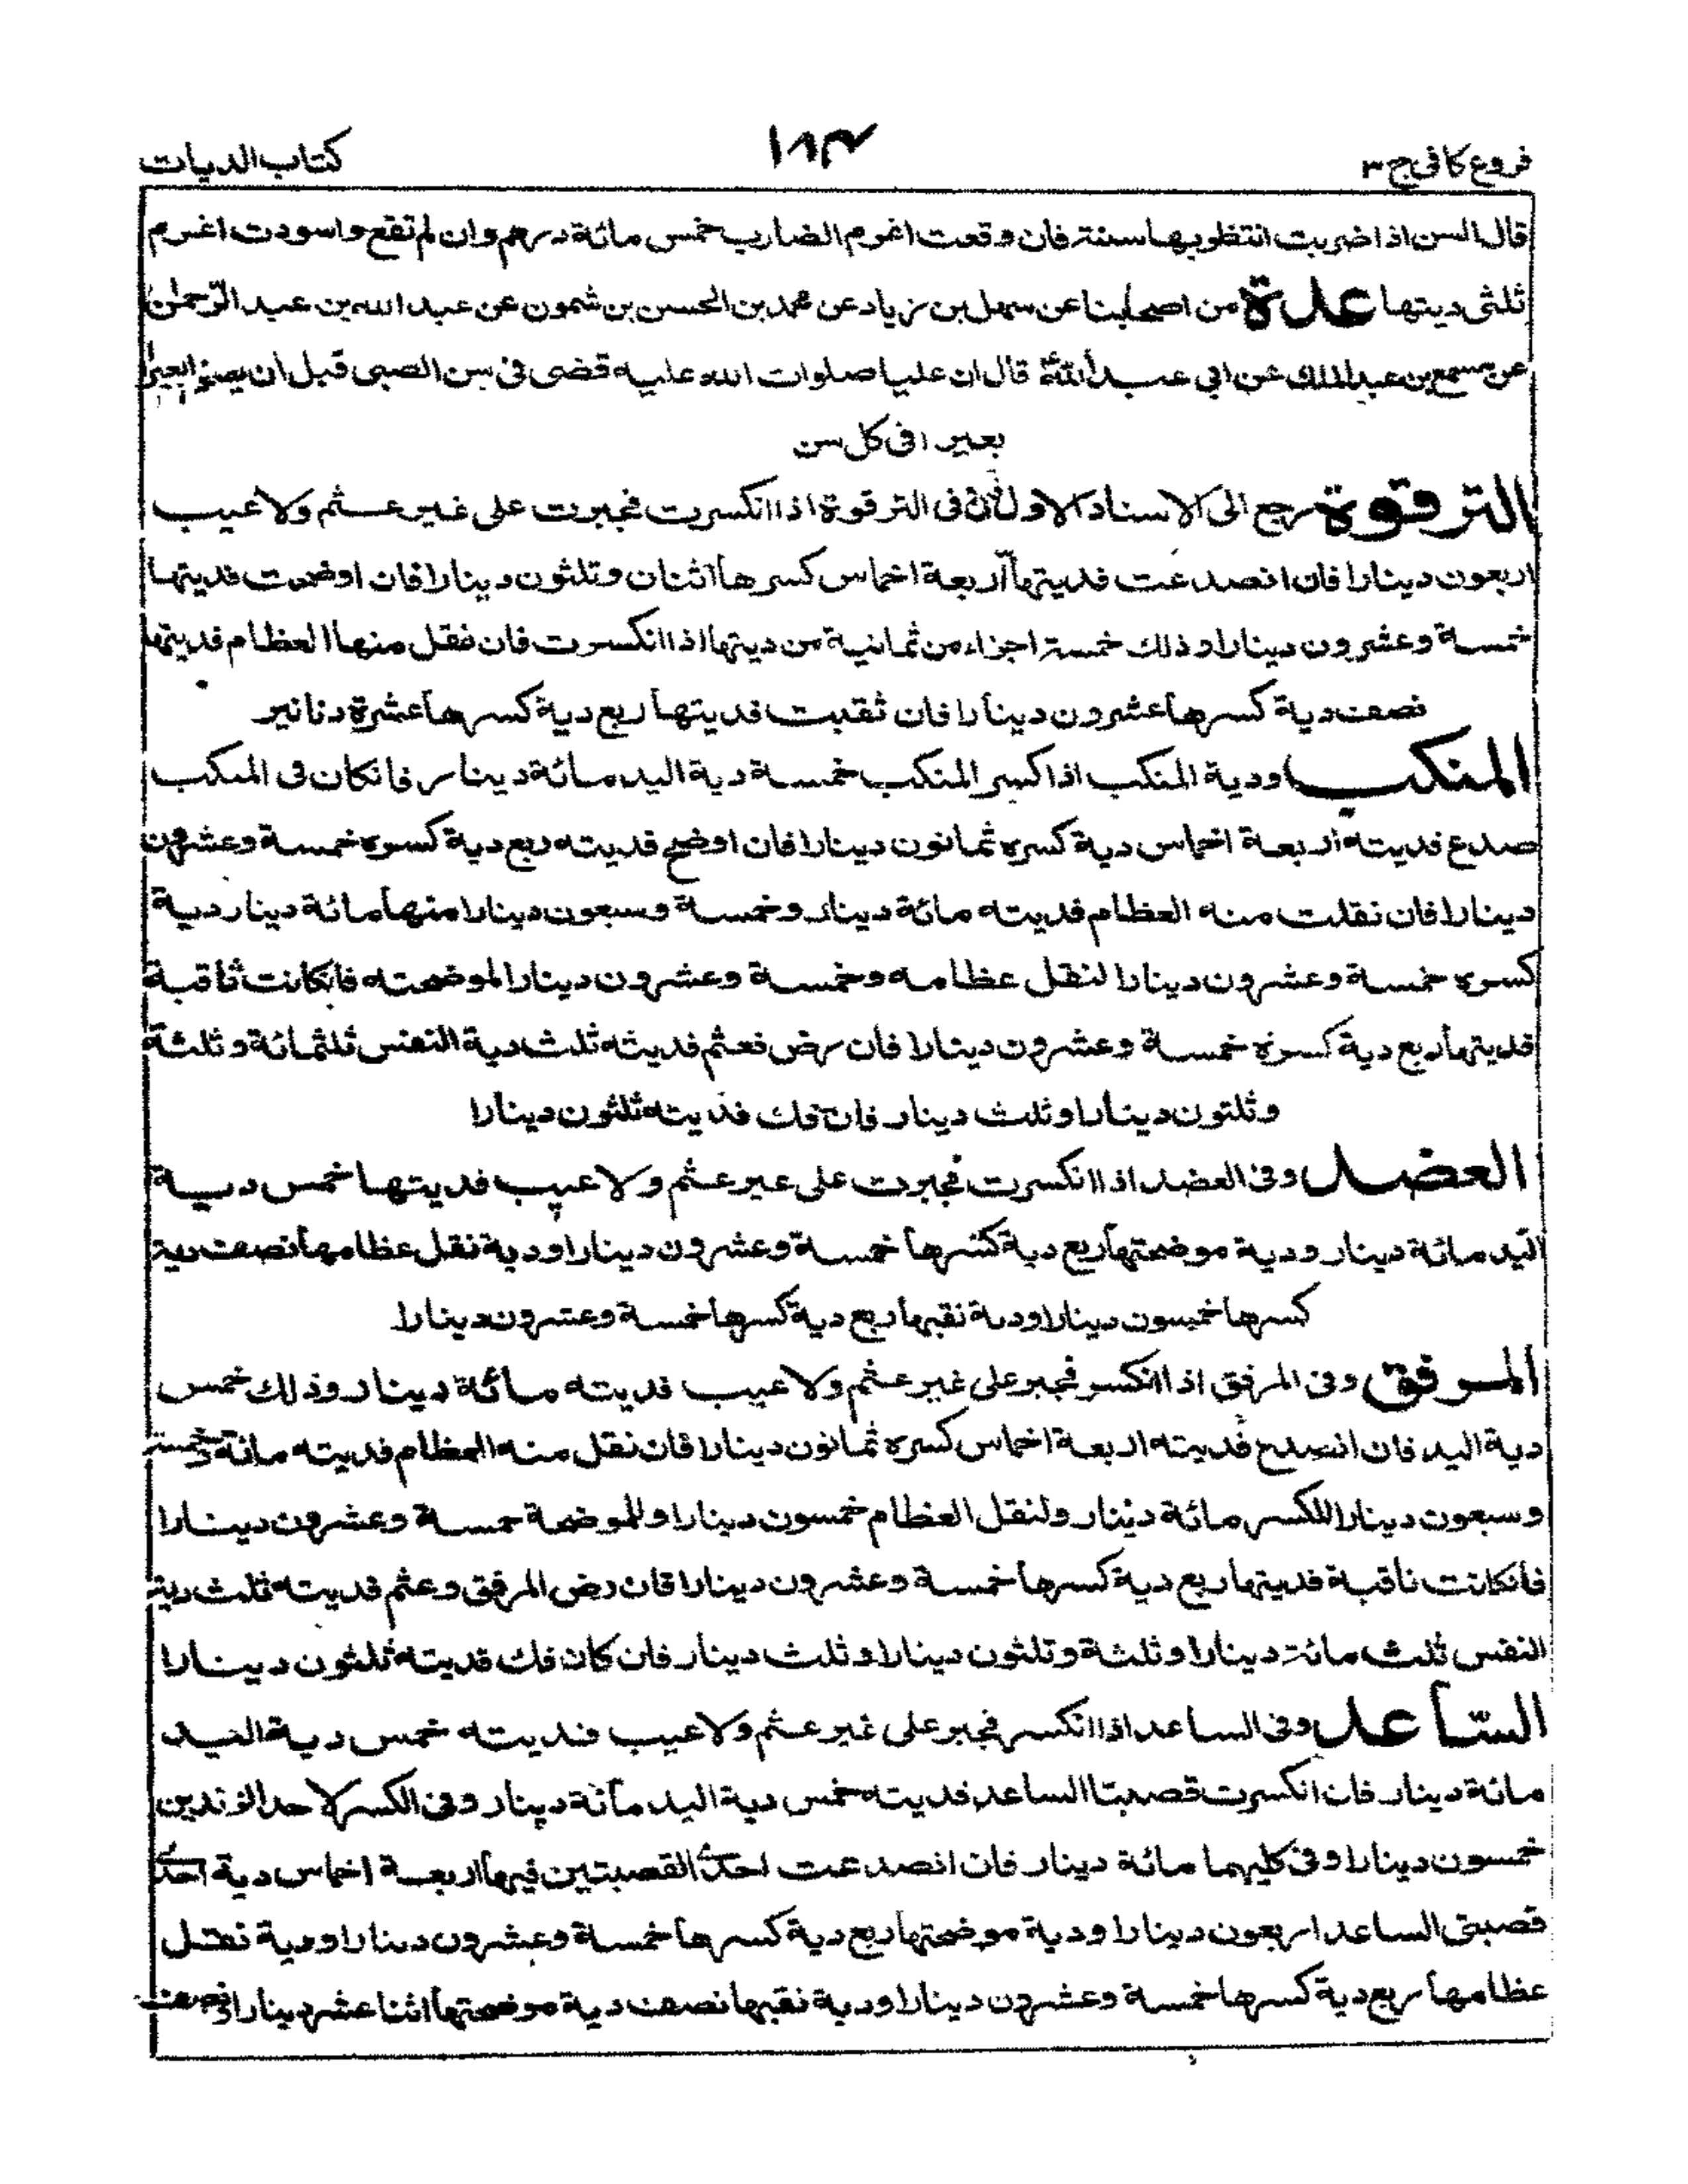 فروع كافى ج ٣
١٨٣
كتاب الديات
قال السن اذا ضربت انتظر بها سنة فان وقعت اغرم الضارب خمس مائة درهم وان لم تقع واسودت اغرم
ثلثى ديتها عدة من اصحابنا عن سهل بن زياد عن محمد بن الحسن بن شمون عن عبد الله بن عبد الرحمٰن
عن مسمع بن عبد الملك عن ابي عبد الله قال ان عليا صلوات الله عليه قضى فى سن الصبى قبل ان يصغر بعيرا
بعيرا فى كل سن
الترقوة رجع الى الاسناد الاول قال فى الترقوة اذا انكسرت فجبرت على غير عثم ولا عيب
اربعون دينارا فان انصدعت فديتها اربعة اخماس كسرها اثنان وثلثون دينارا فان اوضحت فديتها
خمسة وعشرون دينارا وذلك خمسة اجزاء من ثمانية من ديتها اذا انكسرت فان نقل منها العظام فديتها
نصف دية كسرها عشرون دينارا فان ثقبت فديتها ربع دية كسرها عشرة دنانير
المنكب ودية المنكب اذا كسر المنكب خمسة دية اليد مائة دينار فانكان فى المنكب
صدع فديته اربعة اخماس دية كسره ثمانون دينارا فان اوضح فديته ربع دية كسره خمسة وعشرون
دينارا فان نقلت منه العظام فديته مائة دينار وخمسة وسبعون دينارا منها مائة دينار دية
كسره خمسة وعشرون دينارا لنقل عظامه وخمسة وعشرون دينارا لموضحته فانكانت ثاقبة
فديتها ربع دية كسره خمسة وعشرون دينارا فان رض فعثم فديته ثلث دية النفس ثلثمائة وثلثة
وثلثون دينارا وثلث دينار فان فك فديته ثلثون دينارا
العضد وفى العضد اذا انكسرت فجبرت على غير عثم ولا عيب فديتها خمس دية
اليد مائة دينار ودية موضحتها ربع دية كسرها خمسة وعشرون دينارا ودية نقل عظامها نصف دية
كسرها خمسون دينارا ودية نقبها ربع دية كسرها خمسة وعشرون دينارا
المرفق وفى المرفق اذا انكسر فجبر على غير عثم ولا عيب فديته مائة دينار وذلك خمس
دية اليد فان انصدع فديته اربعة اخماس كسره ثمانون دينارا فان نقل منه العظام فديته مائة وخمسة
وسبعون دينارا للكسر مائة دينار ولنقل العظام خمسون دينارا وللموضحة خمسة وعشرون دينارا
فانكانت ناقبة فديتها ربع دية كسرها خمسة وعشرون دينارا فان رض المرفق وعثم فديته ثلث دية
النفس ثلث مائة دينارا وثلثة وثلثون دينارا وثلث دينار فان كان فك فديته ثلثون دينارا
الساعد وفى الساعد اذا انكسر فجبر على غير عثم ولا عيب فديته خمس دية اليد
مائة دينار فان انكسرت قصبتا الساعد فديته خمس دية اليد مائة دينار وفى الكسر لاحد الزندين
خمسون دينارا وفى كليهما مائة دينار فان انصدعت احدى القصبتين فيها اربعة اخماس دية احدى
قصبتى الساعد اربعون دينارا ودية موضحتها ربع دية كسرها خمسة وعشرون دينارا ودية نقل
عظامها ربع دية كسرها خمسة وعشرون دينارا ودية نقبها نصف دية موضحتها اثنا عشر دينارا ونصف